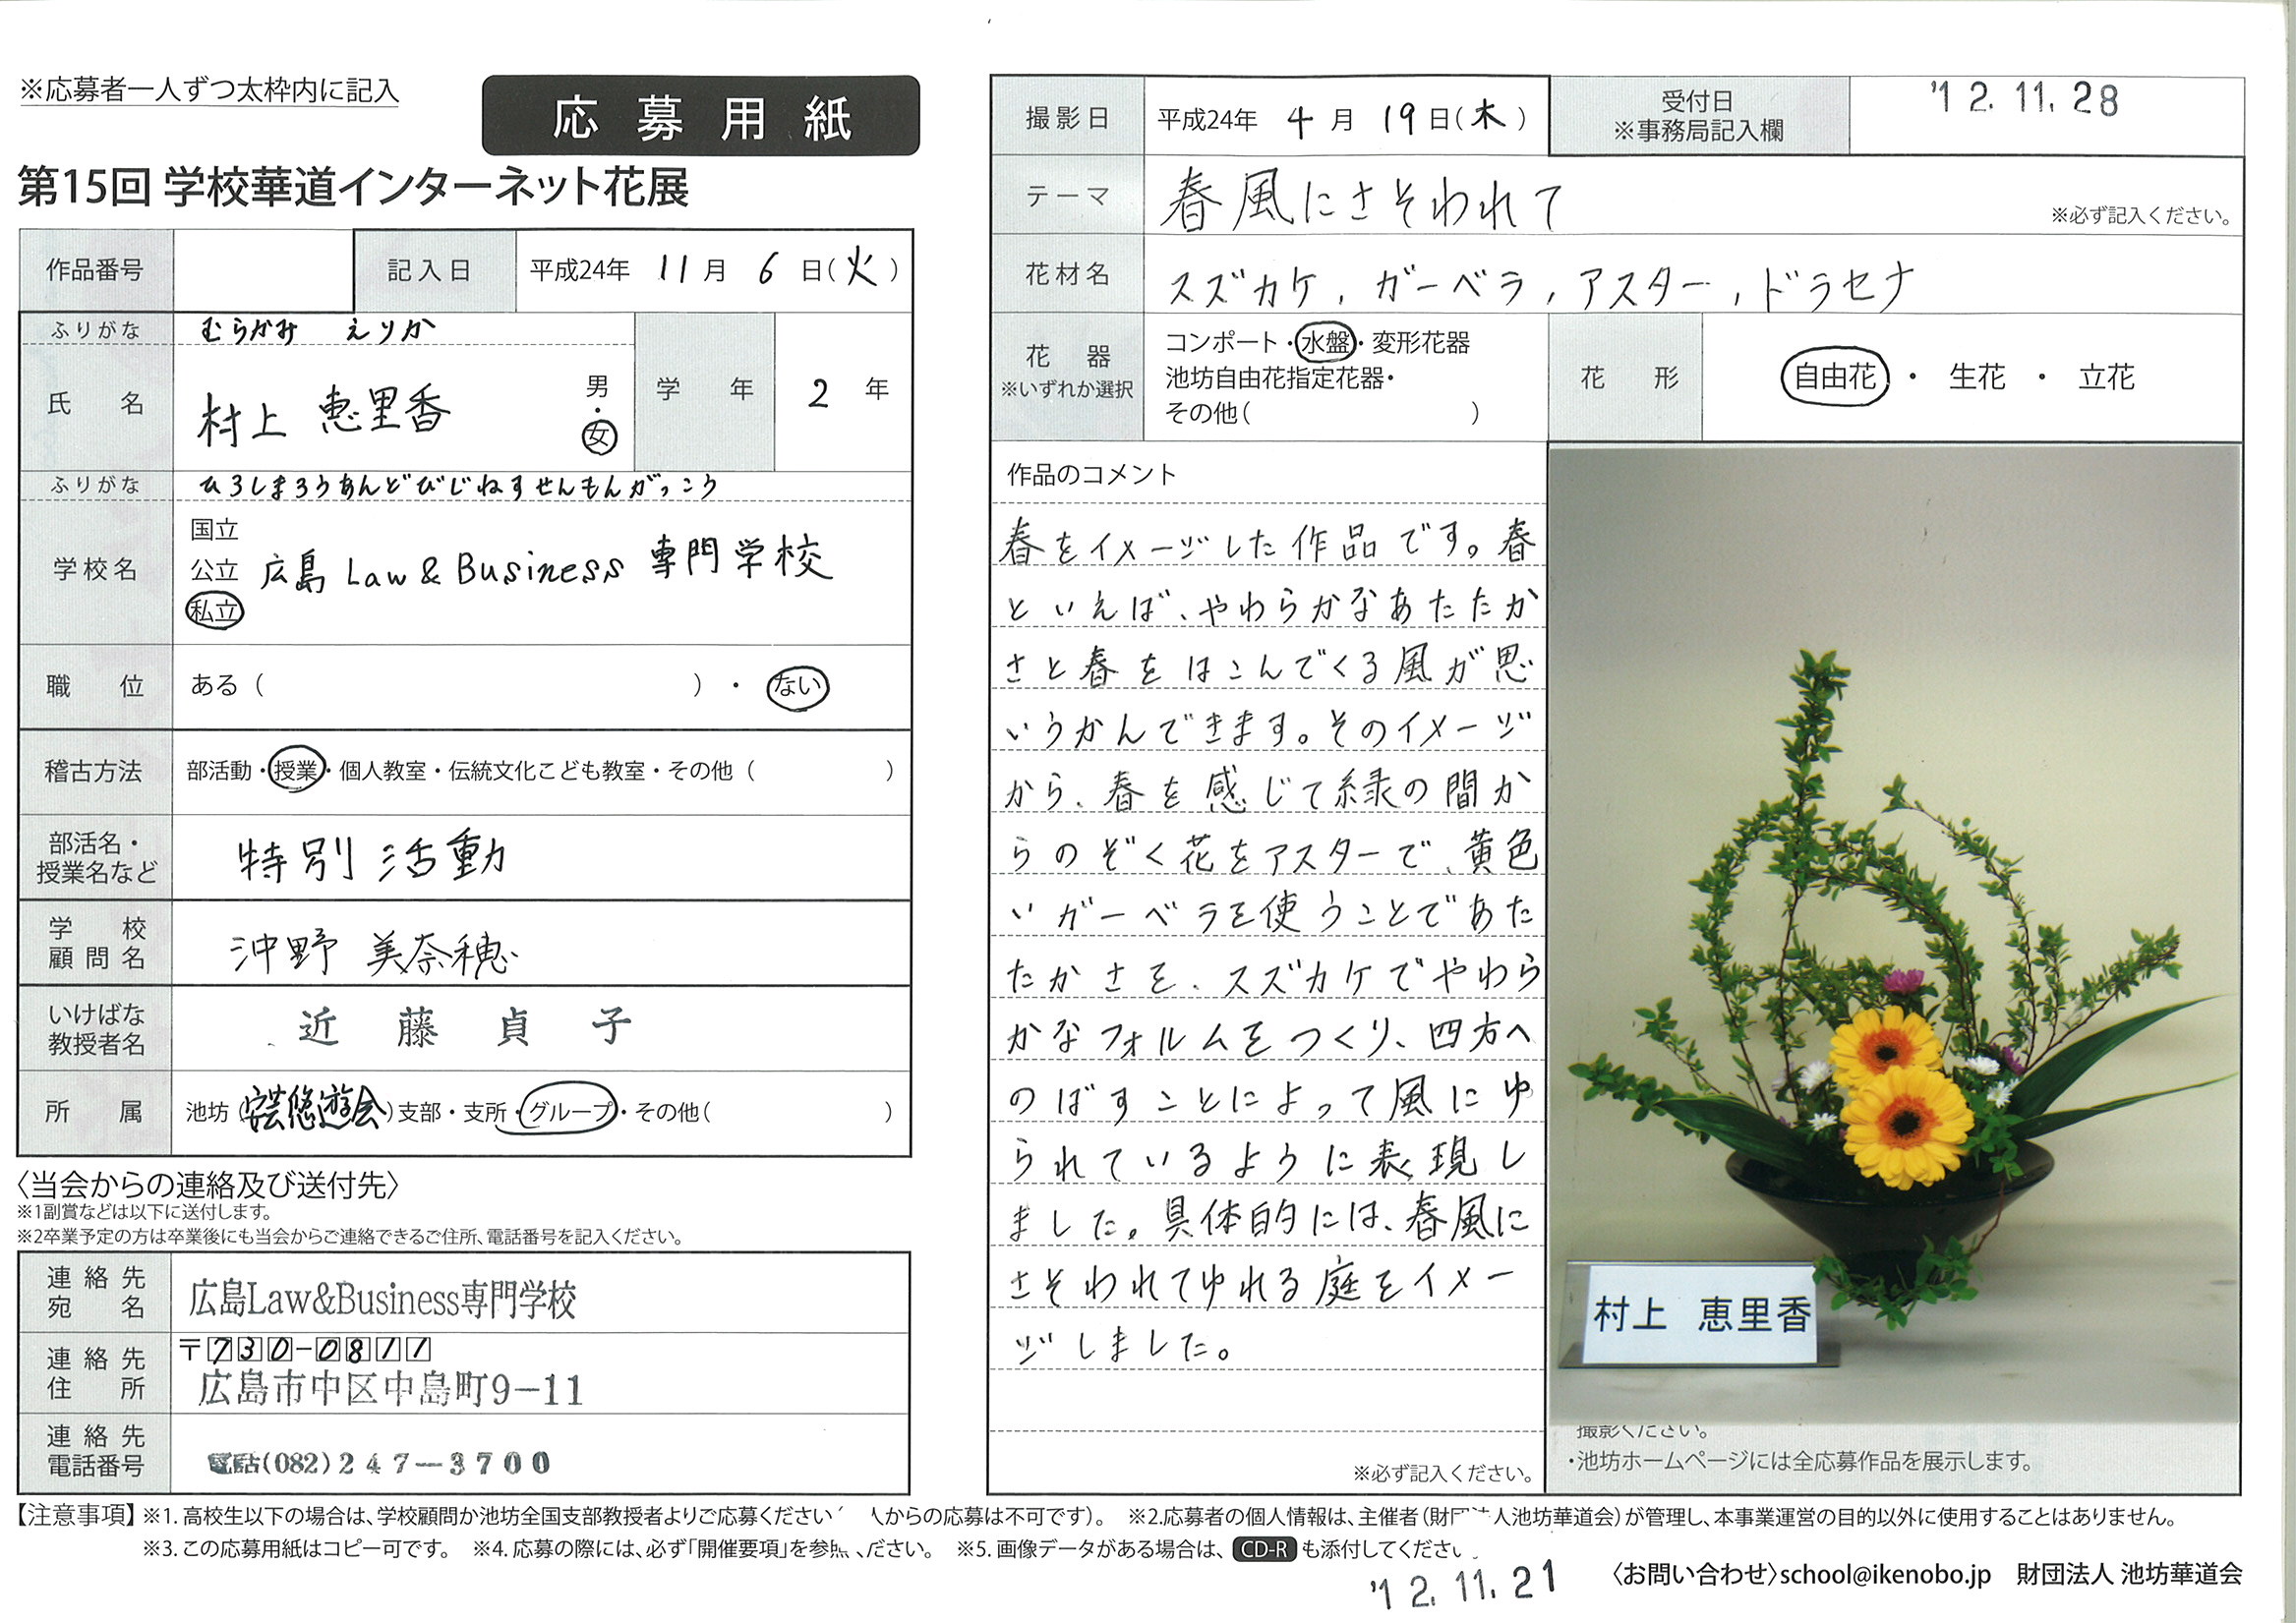 ※応募者一人ずつ太枠内に記入
応募用紙
第15回 学校華道インターネット花展
作品番号
記入日 平成24年 11月 6日(火)
ふりがな むらかみ えりか
氏名 村上 恵里香 男・女
学年 2年
ふりがな ひろしまろうあんどびじねすせんもんがっこう
学校名 国立 公立 私立 広島 Law & Business 専門学校
職位 ある( )・ない
稽古方法 部活動・授業・個人教室・伝統文化こども教室・その他( )
部活名・授業名など 特別活動
学校顧問名 沖野 美奈穂
いけばな教授者名 近藤貞子
所属 池坊(安芸悠遊会)支部・支所・グループ・その他( )
〈当会からの連絡及び送付先〉
※1副賞などは以下に送付します。
※2卒業予定の方は卒業後にも当会からご連絡できるご住所、電話番号を記入ください。
連絡先宛名 広島Law&Business専門学校
連絡先住所 〒730-0811
広島市中区中島町9-11
連絡先電話番号 電話(082)247-3700
撮影日 平成24年 4月 19日(木)
受付日 ※事務局記入欄 '12.11.28
テーマ 春風にさそわれて ※必ず記入ください。
花材名 スズカケ, ガーベラ, アスター, ドラセナ
花器 ※いずれか選択
コンポート・水盤・変形花器
池坊自由花指定花器・
その他( )
花形 自由花・生花・立花
作品のコメント
春をイメージした作品です。春
といえば、やわらかなあたたか
さと春をはこんでくる風が思
いうかんできます。そのイメージ
から、春を感じて緑の間か
らのぞく花をアスターで、黄色
いガーベラを使うことであた
たかさを、スズカケでやわら
かなフォルムをつくり、四方へ
のばすことによって風にゆ
られているように表現し
ました。具体的には、春風に
さそわれてゆれる庭をイメー
ジしました。
※必ず記入ください。
村上 恵里香
撮影ください。
・池坊ホームページには全応募作品を展示します。
【注意事項】※1. 高校生以下の場合は、学校顧問か池坊全国支部教授者よりご応募ください 人からの応募は不可です)。 ※2.応募者の個人情報は、主催者(財団法人池坊華道会)が管理し、本事業運営の目的以外に使用することはありません。
※3. この応募用紙はコピー可です。 ※4. 応募の際には、必ず「開催要項」を参照ください。 ※5. 画像データがある場合は、CD-Rも添付してください
'12.11.21
〈お問い合わせ〉school@ikenobo.jp 財団法人 池坊華道会